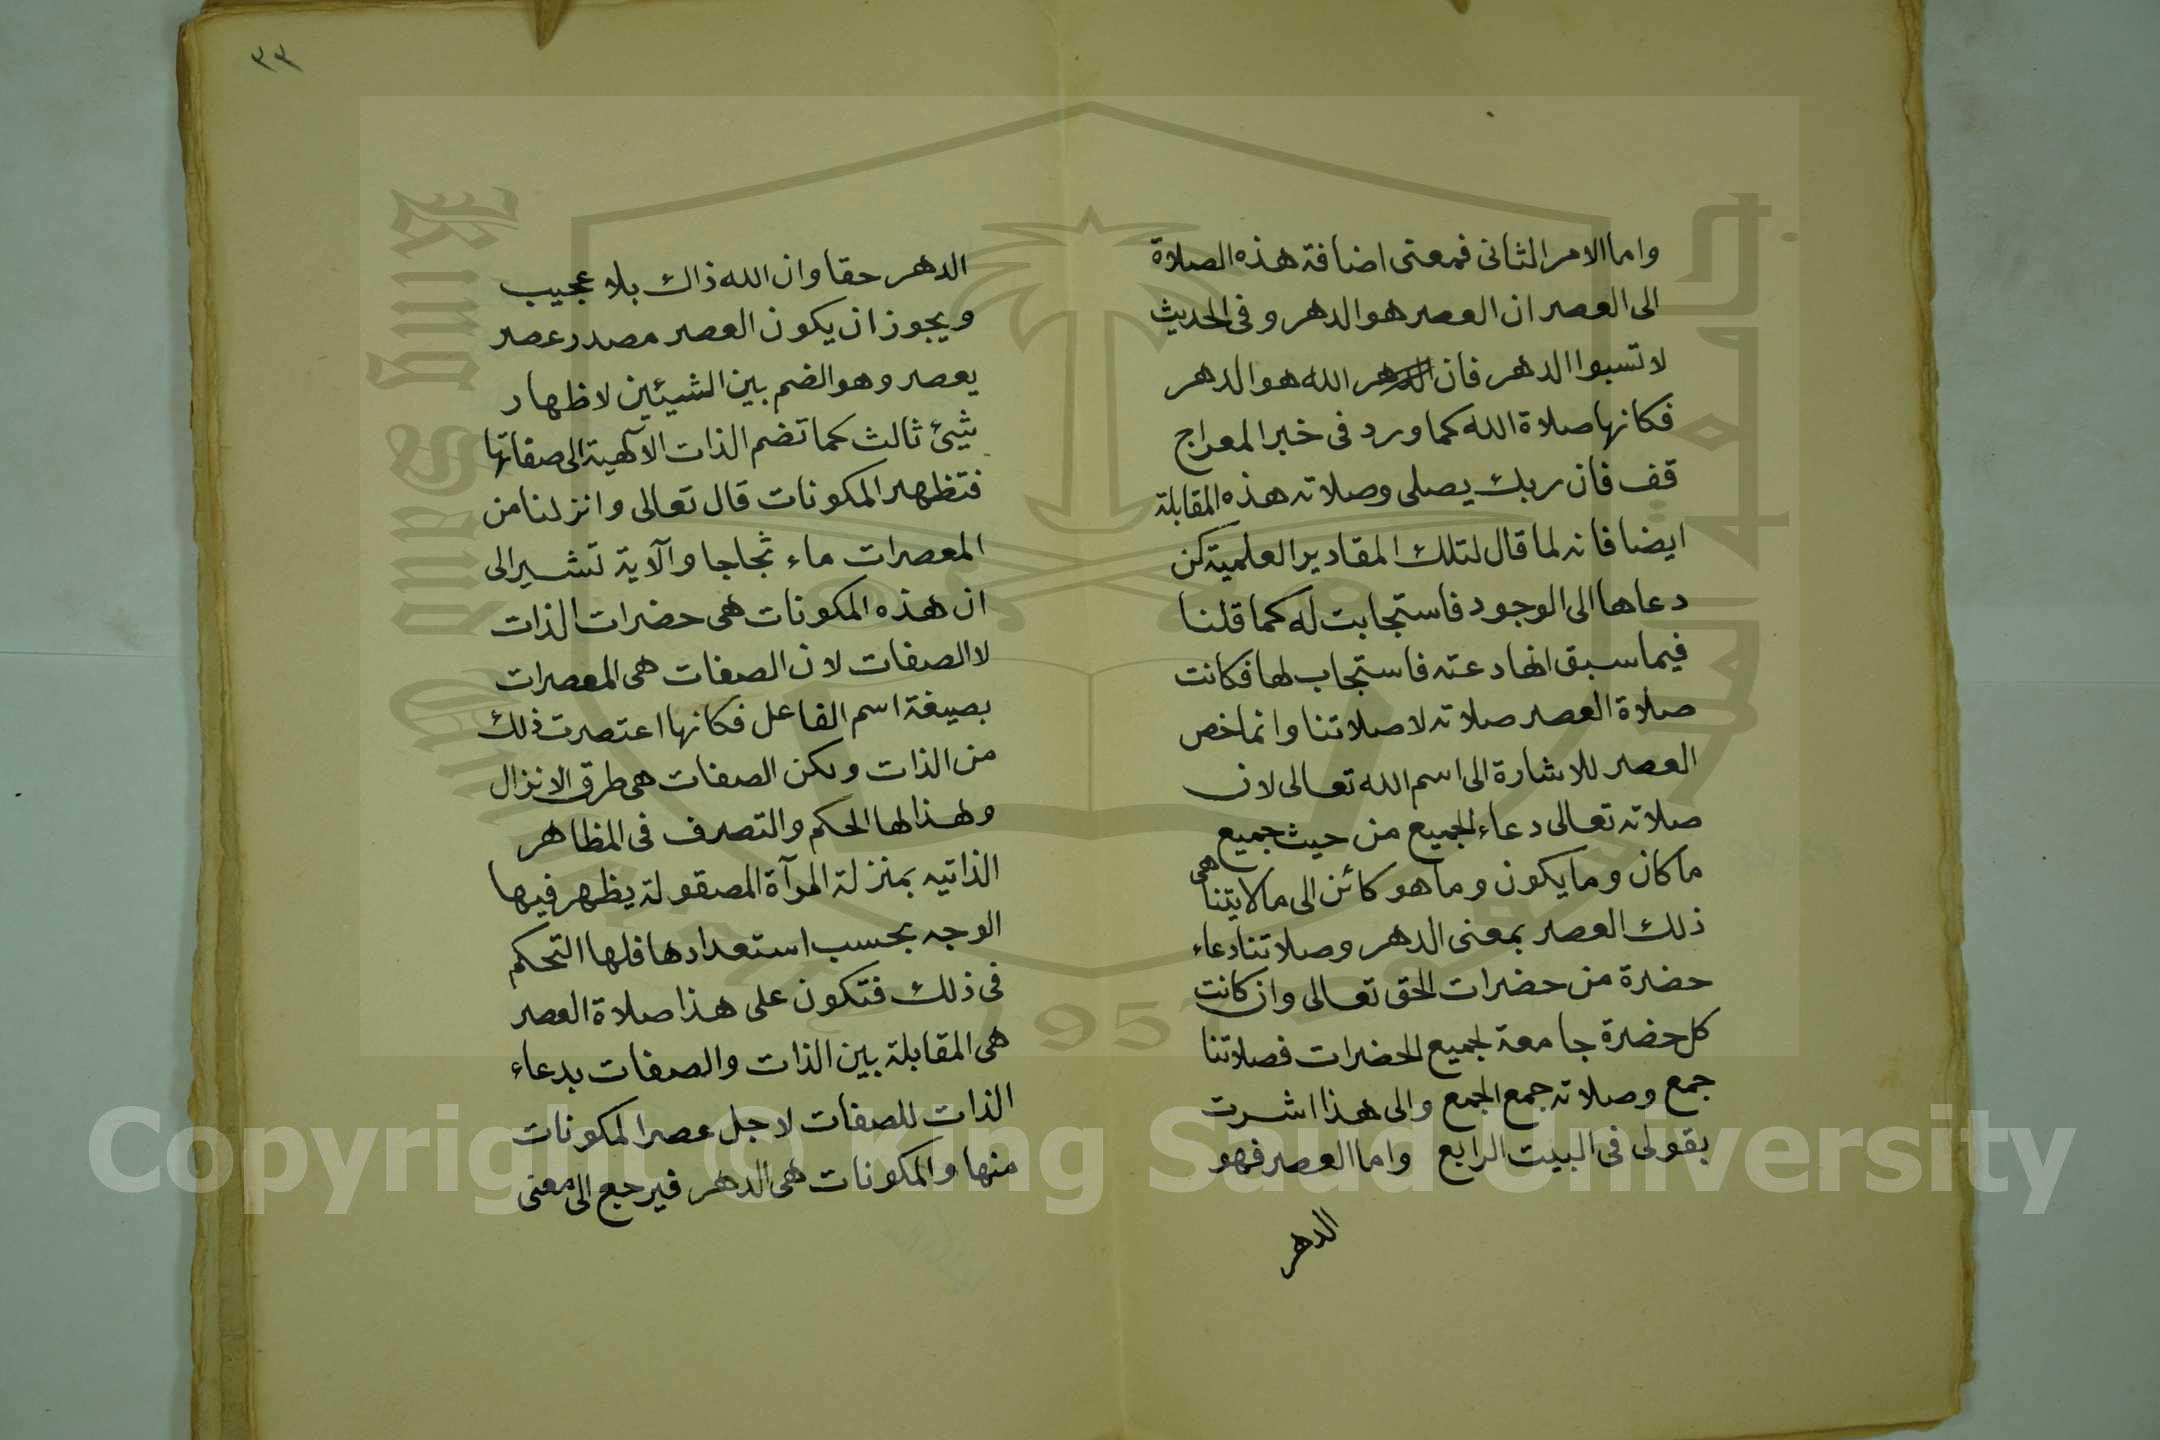 واما الامر الثانى فمعنى اضافة هذه الصلاة
الى العصر ان العصر هو الدهر وفى الحديث
لا تسبوا الدهر فان الدهر الله هو الدهر
فكانها صلاة الله كما ورد فى خبر المعراج
قف فان ربك يصلى وصلاته هذه المقابلة
ايضا فانه لما قال لتلك المقادير العلمية كن
دعاها الى الوجود فاستجابت له كما قلنا
فيما سبق انها دعته فاستجاب لها فكانت
صلاة العصر صلاته لا صلاتنا وانما خص
العصر للاشارة الى اسم الله تعالى لان
صلاته تعالى دعاء الجميع من حيث جميع
ما كان وما يكون وما هو كائن الى ما لا يتنا هى
ذلك العصر بمعنى الدهر وصلاتنا دعاء
حضرة من حضرات الحق تعالى وان كانت
كل حضرة جامعة لجميع الحضرات فصلاتنا
جمع وصلاته جمع الجمع والى هذا اشرت
بقولى فى البيت الرابع واما العصر فهو
الدهر
٣٣
الدهر حقا وان الله ذاك بلا عجيب
ويجوز ان يكون العصر مصدر عصر
يعصر وهو الضم بين الشيئين لاظهار
شيئ ثالث كما تضم الذات الآلهية الى صفاتها
فتظهر المكونات قال تعالى وانزلنا من
المعصرات ماء ثجاجا والآية تشير الى
ان هذه المكونات هى حضرات الذات
لا الصفات لان الصفات هى المعصرات
بصيغة اسم الفاعل فكانها اعتصرت ذلك
من الذات ولكن الصفات هى طرق الانزال
ولهذا لها الحكم والتصرف فى المظاهر
الذاتيه بمنزلة المرآة المصقولة يظهر فيها
الوجه بحسب استعدادها فلها التحكم
فى ذلك فتكون على هذا صلاة العصر
هى المقابلة بين الذات والصفات بدعاء
الذات للصفات لاجل عصر المكونات
منها والمكونات هى الدهر فيرجع الى معنى
Copyright © King Saud University
King Saud University
1957